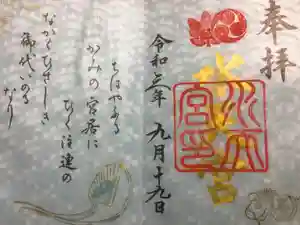 奉拝
水天宮
水天宮印
令和三年 九月十九日
ちはやふる
かみの宮居に
ひく注連の
ながくひさしき
御代いのる
なり